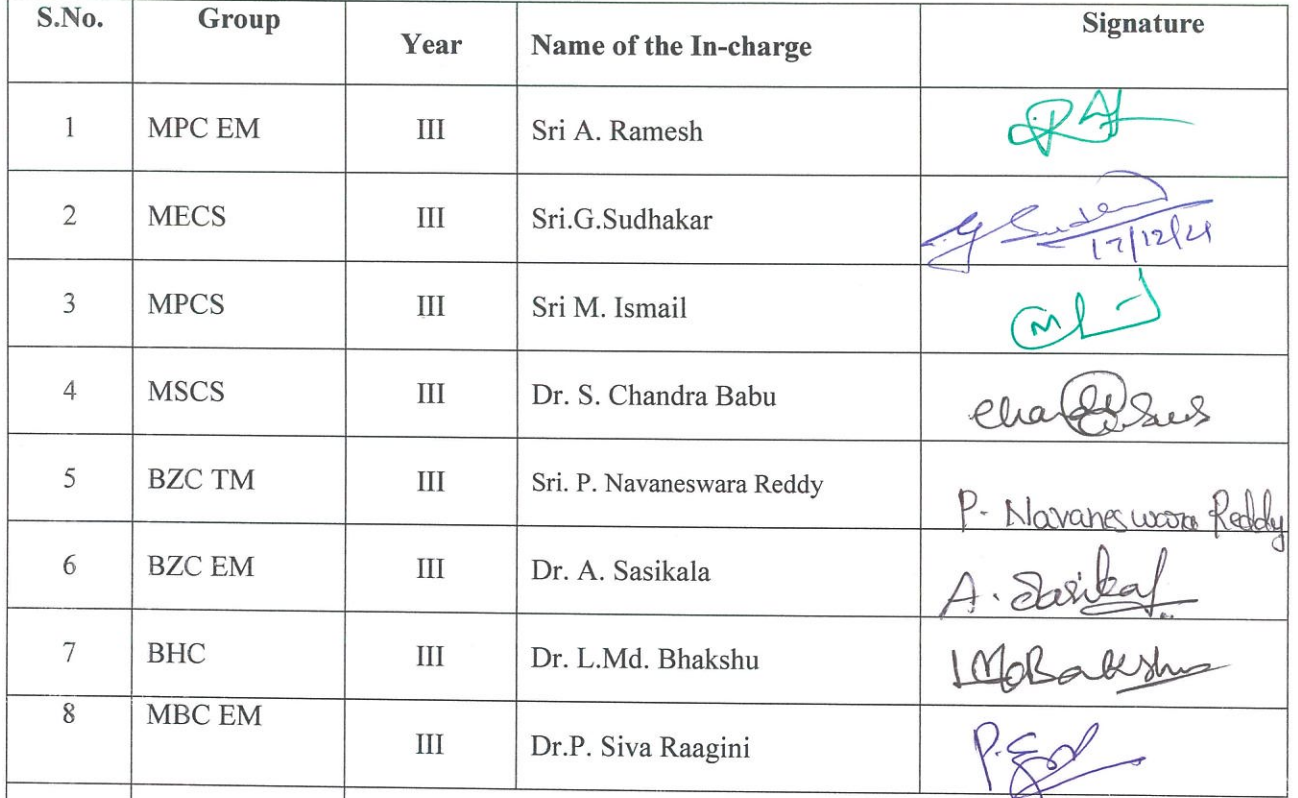 S.No. Group Year Name of the In-charge Signature
1 MPC EM III Sri A. Ramesh
2 MECS III Sri.G.Sudhakar
17/12/21
3 MPCS III Sri M. Ismail
4 MSCS III Dr. S. Chandra Babu
5 BZC TM III Sri. P. Navaneswara Reddy P. Navaneswara Reddy
6 BZC EM III Dr. A. Sasikala A. Sasikal
7 BHC III Dr. L.Md. Bhakshu
8 MBC EM III Dr.P. Siva Raagini